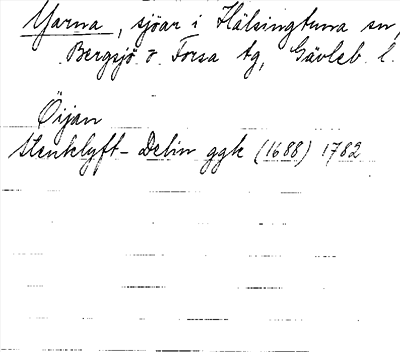 Yarna, sjöar i Hälsingtuna sn,
Bergsjö o Forsa tg, Gävleb. l.
Öijan
Stenklyft - Delin ggk (1688) 1782